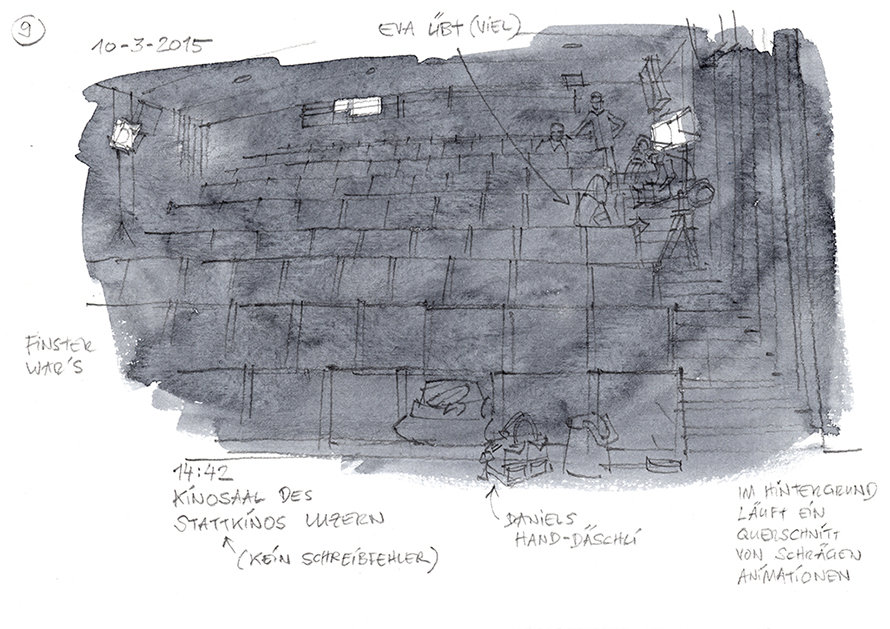 9
10-3-2015
EVA ÜBT (VIEL)
FINSTER
WAR'S
14:42
KINOSAAL DES
STATTKINOS LUZERN
(KEIN SCHREIBFEHLER)
DANIELS
HAND-DÄSCHLI
IM HINTERGRUND
LÄUFT EIN
QUERSCHNITT
VON SCHRÄGEN
ANIMATIONEN